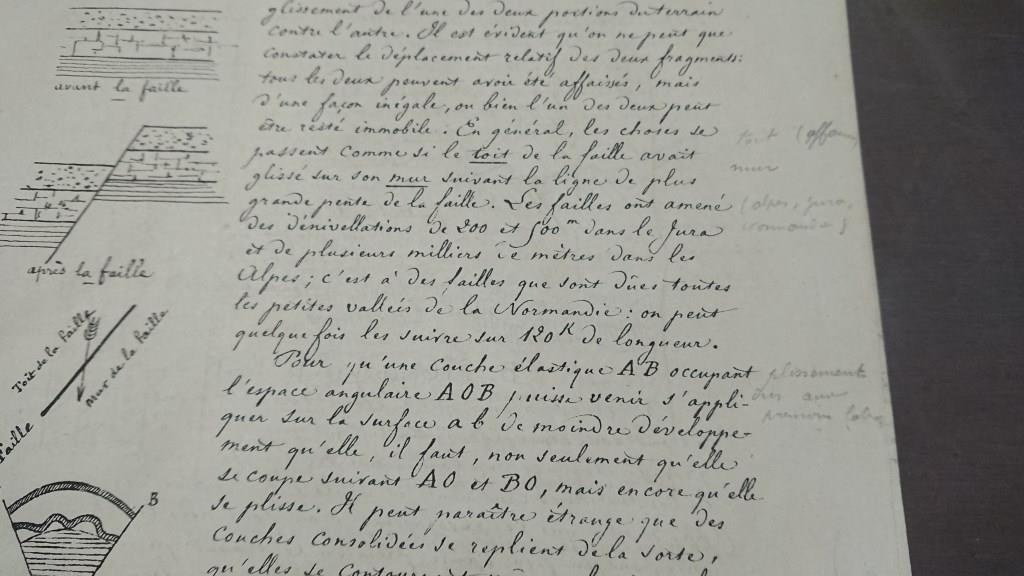 glissement de l'une des deux portions du terrain
contre l'autre. Il est évident qu'on ne peut que
constater le déplacement relatif des deux fragments:
tous les deux peuvent avoir été affaissés, mais
d'une façon inégale, ou bien l'un des deux peut
être resté immobile. En général, les choses se
passent comme si le toit de la faille avait
glissé sur son mur suivant la ligne de plus
grande pente de la faille. Les failles ont amené
des dénivellations de 200 et 500m dans le Jura
et de plusieurs milliers de mètres dans les
Alpes; c'est à des failles que sont dûes toutes
les petites vallées de la Normandie: on peut
quelquefois les suivre sur 120K de longueur.
Pour qu'une couche élastique AB occupant
l'espace angulaire AOB puisse venir s'appli-
quer sur la surface ab de moindre développe-
ment qu'elle, il faut, non seulement qu'elle
se coupe suivant AO et BO, mais encore qu'elle
se plisse. Il peut paraître étrange que des
couches consolidées se replient de la sorte,
qu'elles se
avant la faille
après la faille
Toit de la faille
Mur de la faille
Faille
B
toit
mur
(alpes, jura,
plissements